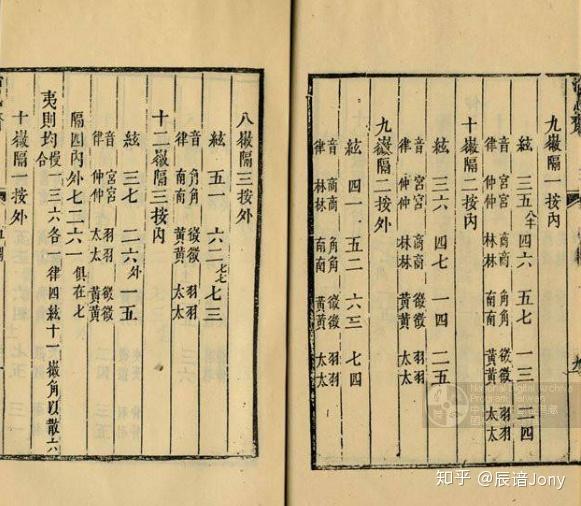 九徽隔一按內
絃 三五八半 四六 五七 一三 二四
音 宮宮 商商 角角 徵徵 羽羽
律 仲仲 林林 南南 黃黃 太太
十徽隔一按內
絃 三六 四七 一四 二五
音 宮宮 商商 徵徵 羽羽
律 仲仲 林林 黃黃 太太
九徽隔二按外
絃 四一 五二 六三 七四
音 商商 角角 徵徵 羽羽
律 林林 南南 黃黃 太太
八徽隔三按外
絃 五一 六二七七 七三
音 角角 徵徵 羽羽
律 南南 黃黃 太太
十二徽隔三按內
絃 三七 二六外 一五
音 宮宮 羽羽 徵徵
律 仲仲 太太 黃黃
隔四內外七二六一俱在七
夷則均 慢一三六各一律四絃十一徽角以散六
十徽隔一按外
National Digital Archives Program, Taiwan
知乎 @辰谙Jony